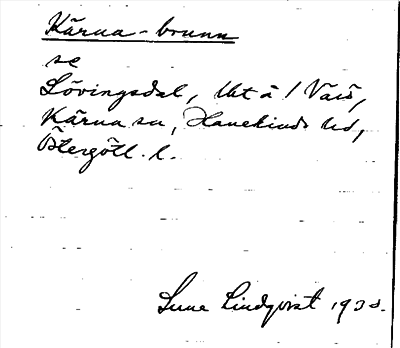 Kärna-brunn
se
Lövingsdal,
Kärna sn, Hanekinds hd,
Östergötl. l.
Sune Lindqvist 1930.